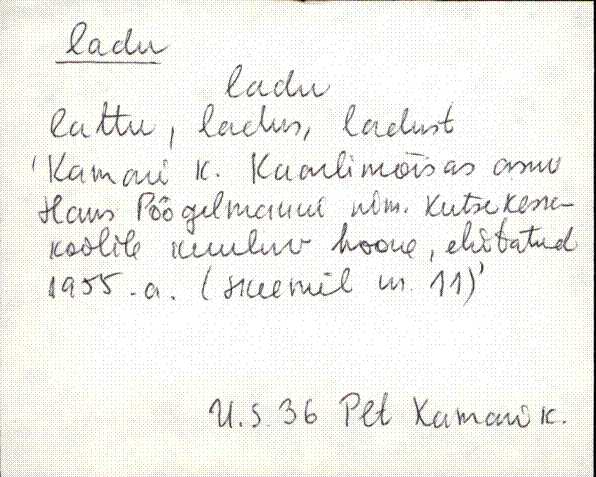 ladu
ladu
lattu, ladus, ladust
'Kamari k. Kaarlimõisas asuv
Hans Pöögelmanni nim. Kutsekesk-
koolile kuuluv hoone, ehitatud
1955.a. (skeemil nr. 11)'
U.S. 36 Plt Kamari k.